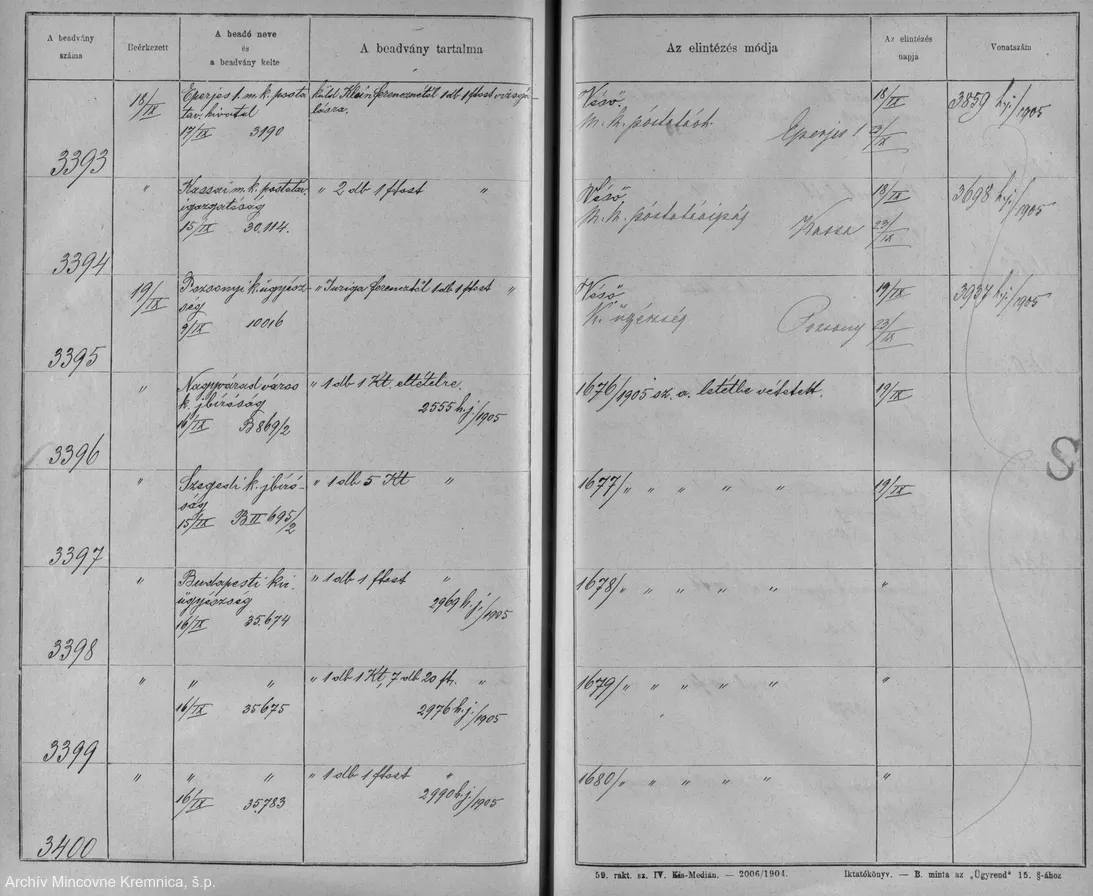 A beadvány száma
Beérkezett
A beadó neve és a beadvány kelte
A beadvány tartalma
Az elintézés módja
Az elintézés napja
Vonatszám
3393
18/IX
Eperjes 1. m. k. posta
táv. hivatal
17/IX 3190
küld Klein Ferencznétől 1 db 1 ftost vizsgá-
lásra.
Véső.
m. k. póstatáv.
Eperjes 1
18/IX
23/IX
3859 h.j./1905
3394
"
Kassai m. k. postatáv.
igazgatóság
15/IX 30.114.
" 2 db 1 ftost "
Véső.
M. k. póstatávigság
Kassa
18/IX
23/IX
3698 h.j./1905
3395
19/IX
Pozsonyi k. ügyész-
ség
9/IX 10016
" Juriga Ferencztől 1 db 1 ftost "
Véső
K. ügyészség
Pozsony
19/IX
23/IX
3937 h.j./1905
3396
"
Nagyvárad város
k. jbíróság
16/IX B 869/2
" 1 db 1 Kt eltételre.
2555 h.j./1905
1676/1905 sz. a. letétbe vétetett.
19/IX
3397
"
Szegedi k. jbíró-
ság
15/IX B II 695/2
" 1 db 5 Kt "
1677/ " " " "
19/IX
3398
"
Budapesti kir.
ügyészség
16/IX 35.674
" 1 db 1 ftost "
2969 h.j./1905
1678/ " " " "
"
3399
"
" "
16/IX 35675
" 1 db 1 Kt, 7 db 20 f. "
2976 h.j./1905
1679/ " " " "
"
3400
"
" "
16/IX 35.783
" 1 db 1 ftost "
2990 h.j./1905
1680/ " " " "
"
S
59. rakt. sz. IV. Kis-Medián. — 2006/1904.
Iktatókönyv. — B. minta az „Ügyrend" 15. §-ához
Archív Mincovne Kremnica, š.p.